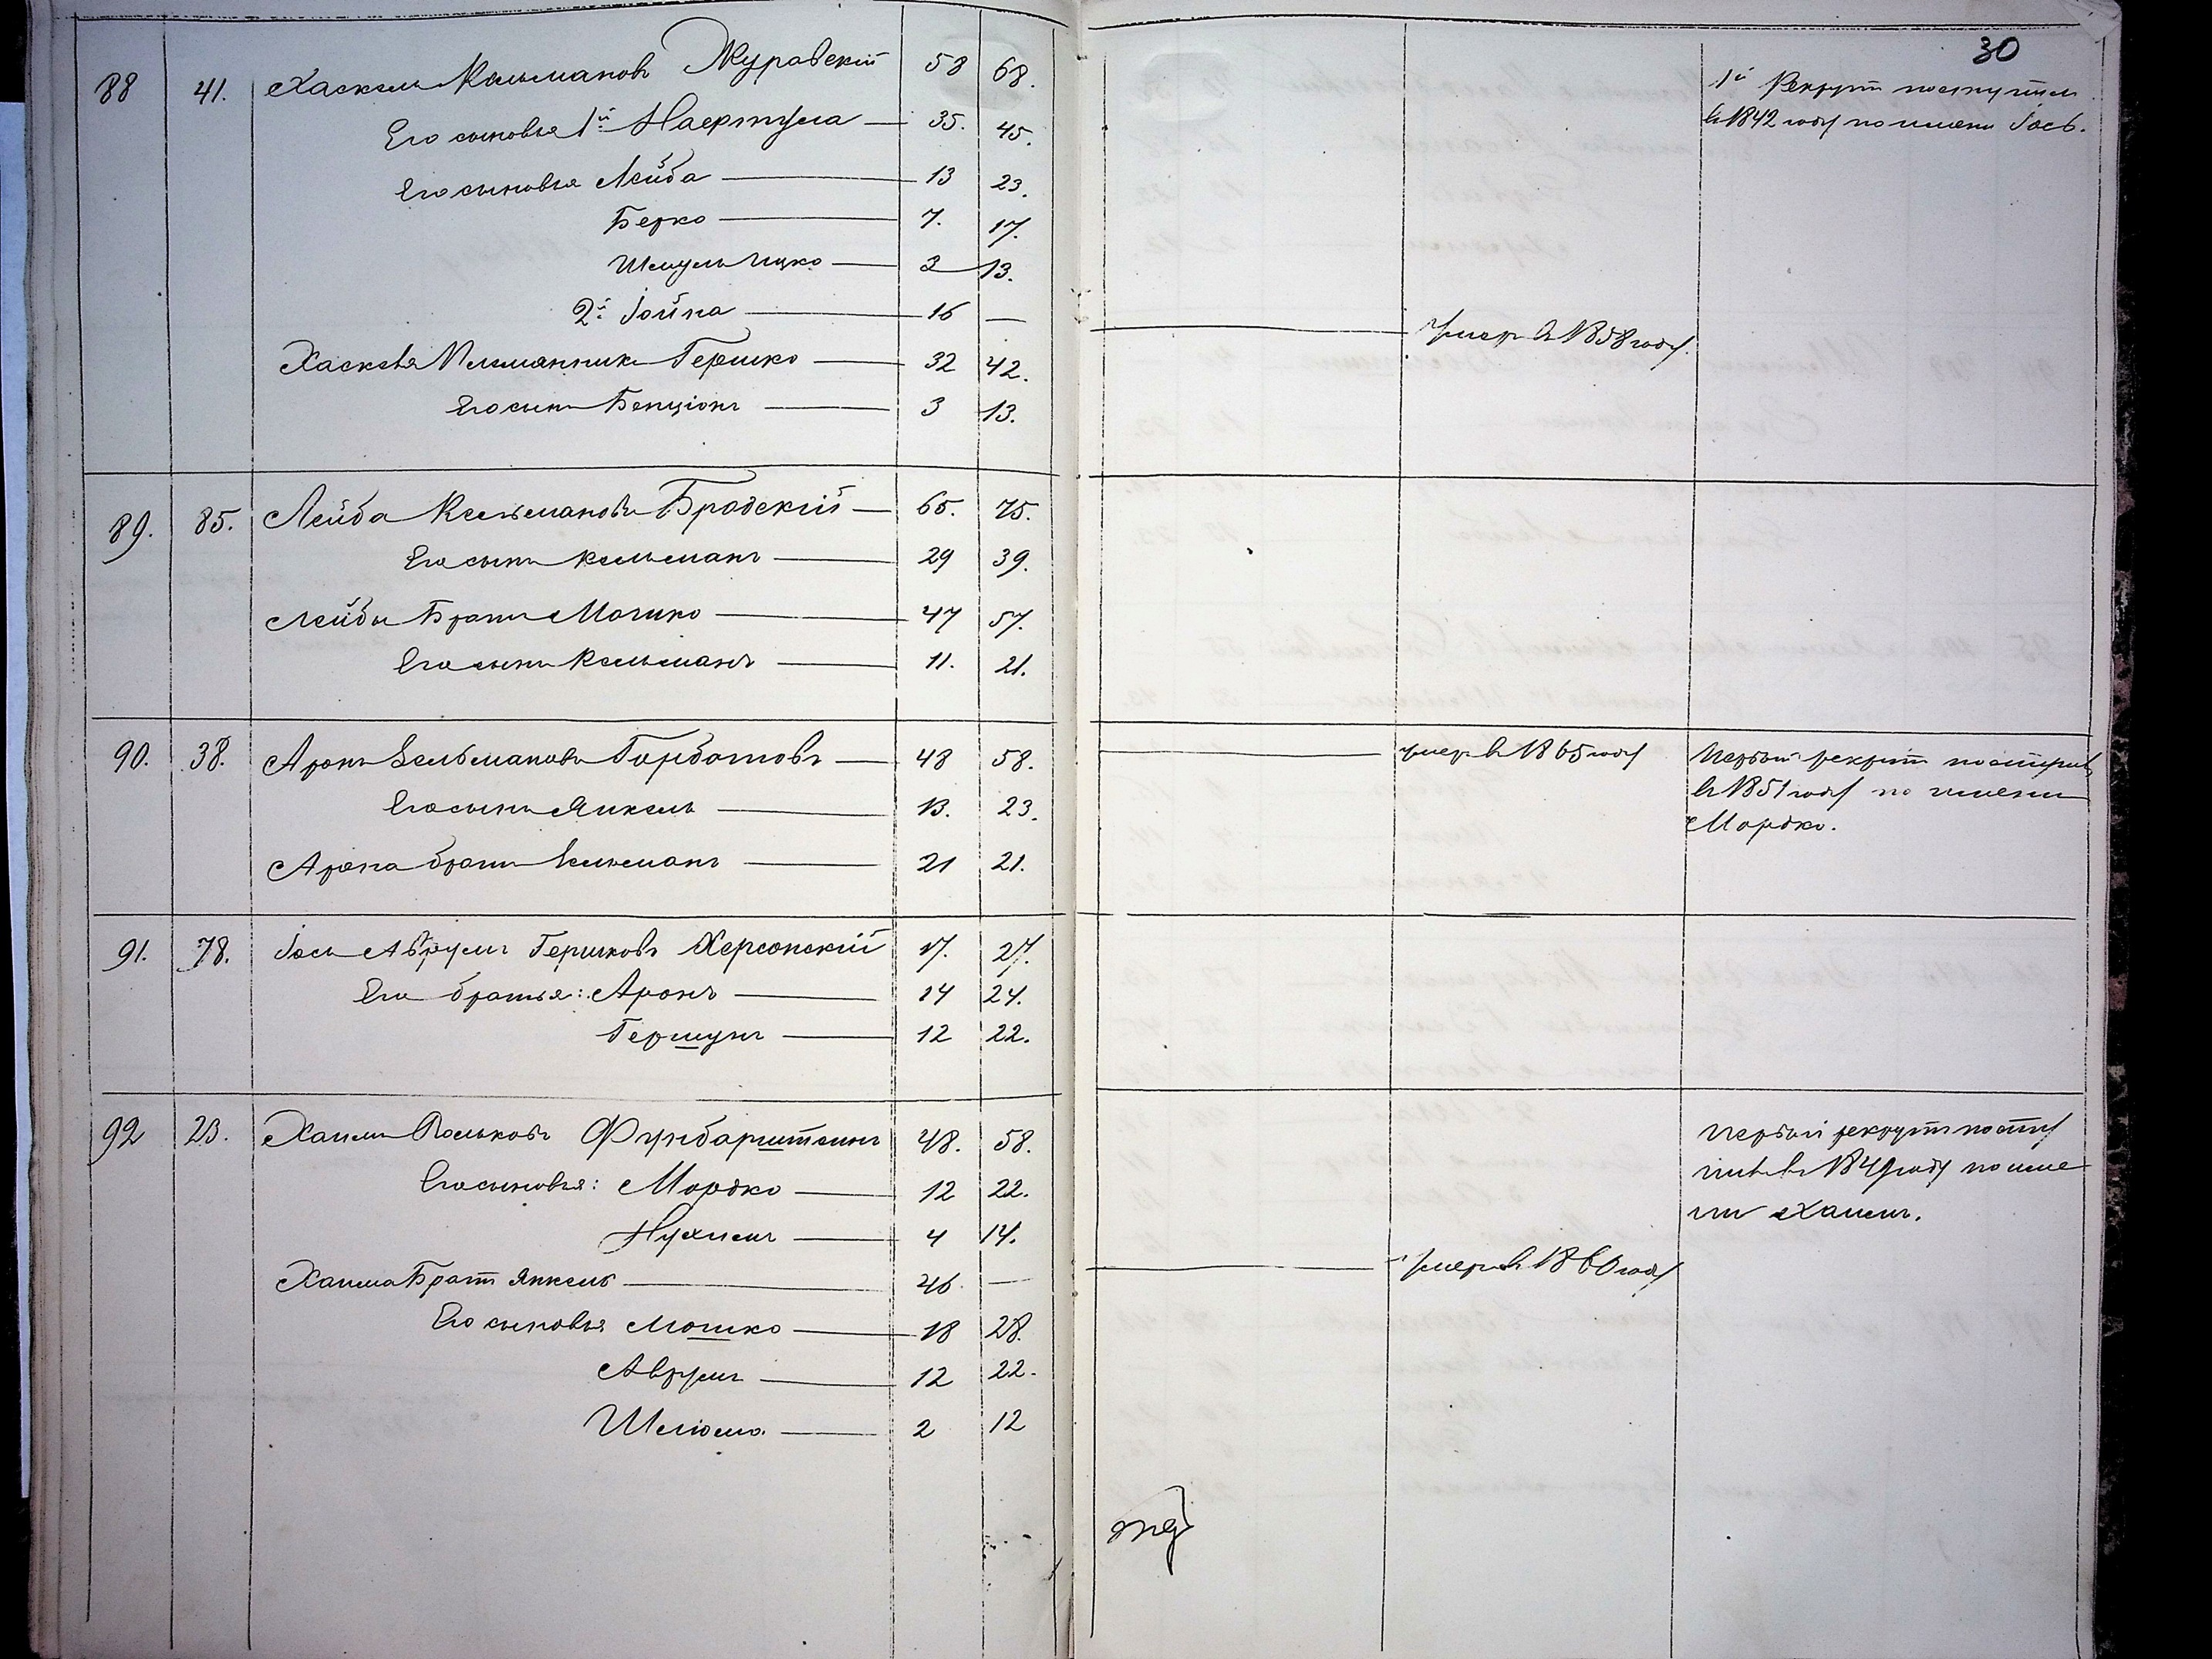 30
88 41. Хаскель Кельманов Журавскій 58 68.
1й Рекрут поступил
в 1842 году по имени Іось.
Его сыновья 1й Нафтула 35. 45.
Его сыновья Лейба 13 23.
Берко 7. 17.
Шмуль Ицко 3 13.
2й Іойна 16 —
умер в 1858 году.
Хаскеля Племянник Гершко 32 42.
Его сын Бенціонъ 3 13.
89. 85. Лейба Кельманов Бродскій 65. 75.
Его сын Кельманъ 29 39.
Лейбы Брат Мошко 47 57.
Его сын Кельманъ 11. 21.
90. 38. Арон Зельманов Горбатовъ 48 58.
умер в 1865 году
Первый рекрут поступив
в 1851 году по имени
Мордко.
Его сын Янкель 13. 23.
Арона брат Зельманъ 21 21.
91. 78. Іось Аврумъ Гершковъ Херсонскій 17. 27.
Его братья: Аронъ 14 24.
Гершунъ 12 22.
92 23. Хаим Вольковъ 48. 58.
Первый рекрут посту
пив в 1849 году по име
ни Хаимъ.
Его сыновья: Мордко 12 22.
Нухимъ 4 14.
Хаима Брат Янкель 46 —
умер в 1860 году
Его сыновья Мошко 18 28.
Аврумъ 12 22.
Шлиома 2 12